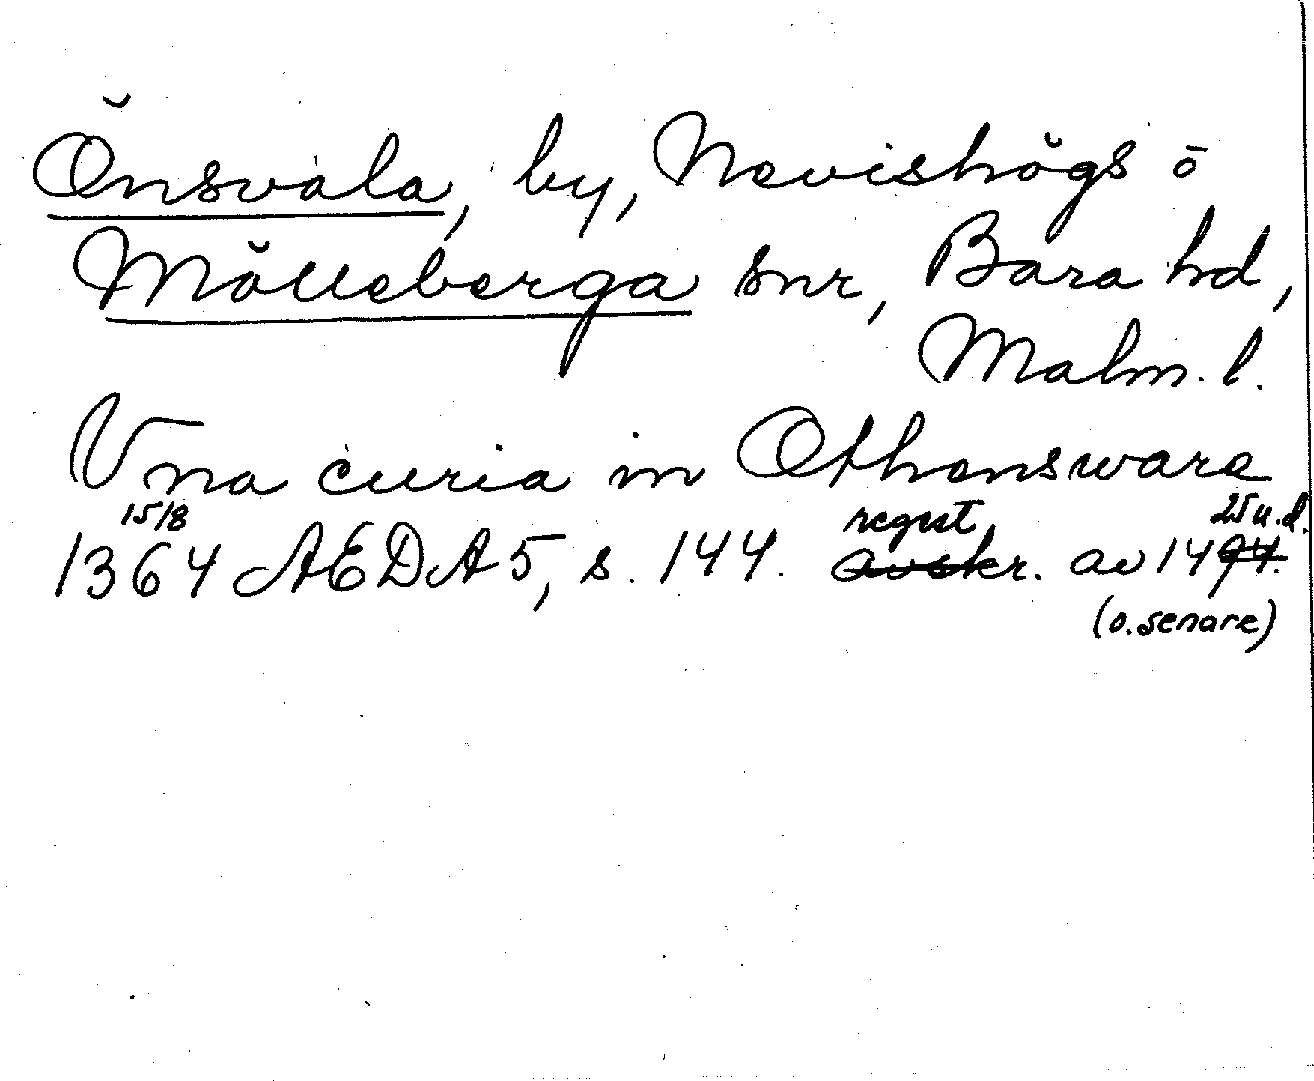 Önsvala, by, Nevishögs o
Mölleberga snr, Bara hd,
Malm. l.
Vna curia in Othensware
15/8 regest 25 u.d.
1364 AEDA 5, s. 144. avskr. av 1494.
(o. senare)